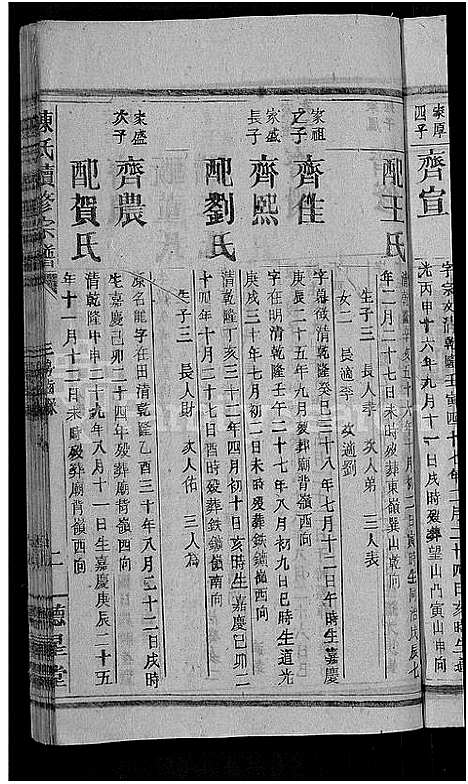 家厚
四子
齊宣
字宗文清乾隆壬寅四十七年二月二十四日亥時生道
光丙申十六年九月十一日戌時殁葬望山凸寅山申向
配王氏
年二月二十七日未時殁葬東嶺巽山乾向
生子三 長人季 次人弟 三人表
女二 長適李 次適劉
家祖
之子
齊佳
字鼎徵清乾隆癸巳三十八年七月十二日午時生嘉慶
庚辰二十五年九月殁葬廟背嶺西向
家盛
長子
齊熙
字在明清乾隆壬午二十七年八月初九日巳時生道光
庚戌三十年七月初二日未時殁葬鉄鎖嶺西向
配劉氏
清乾隆丁亥三十二年四月初十日亥時生嘉慶己卯二
十四年十月二十七日酉時殁葬鉄鎖嶺南向
生子三 長人財 次人佑 三人為
家盛
次子
齊農
原名能字在田清乾隆乙酉三十年八月二十二日戌時
生嘉慶己卯二十四年殁葬廟背嶺西向
配賀氏
清乾隆甲申二十九年八月十一日生嘉慶庚辰二十五
年十一月十二日未時殁葬廟背嶺西向
陳氏續修宗譜
二
德星堂